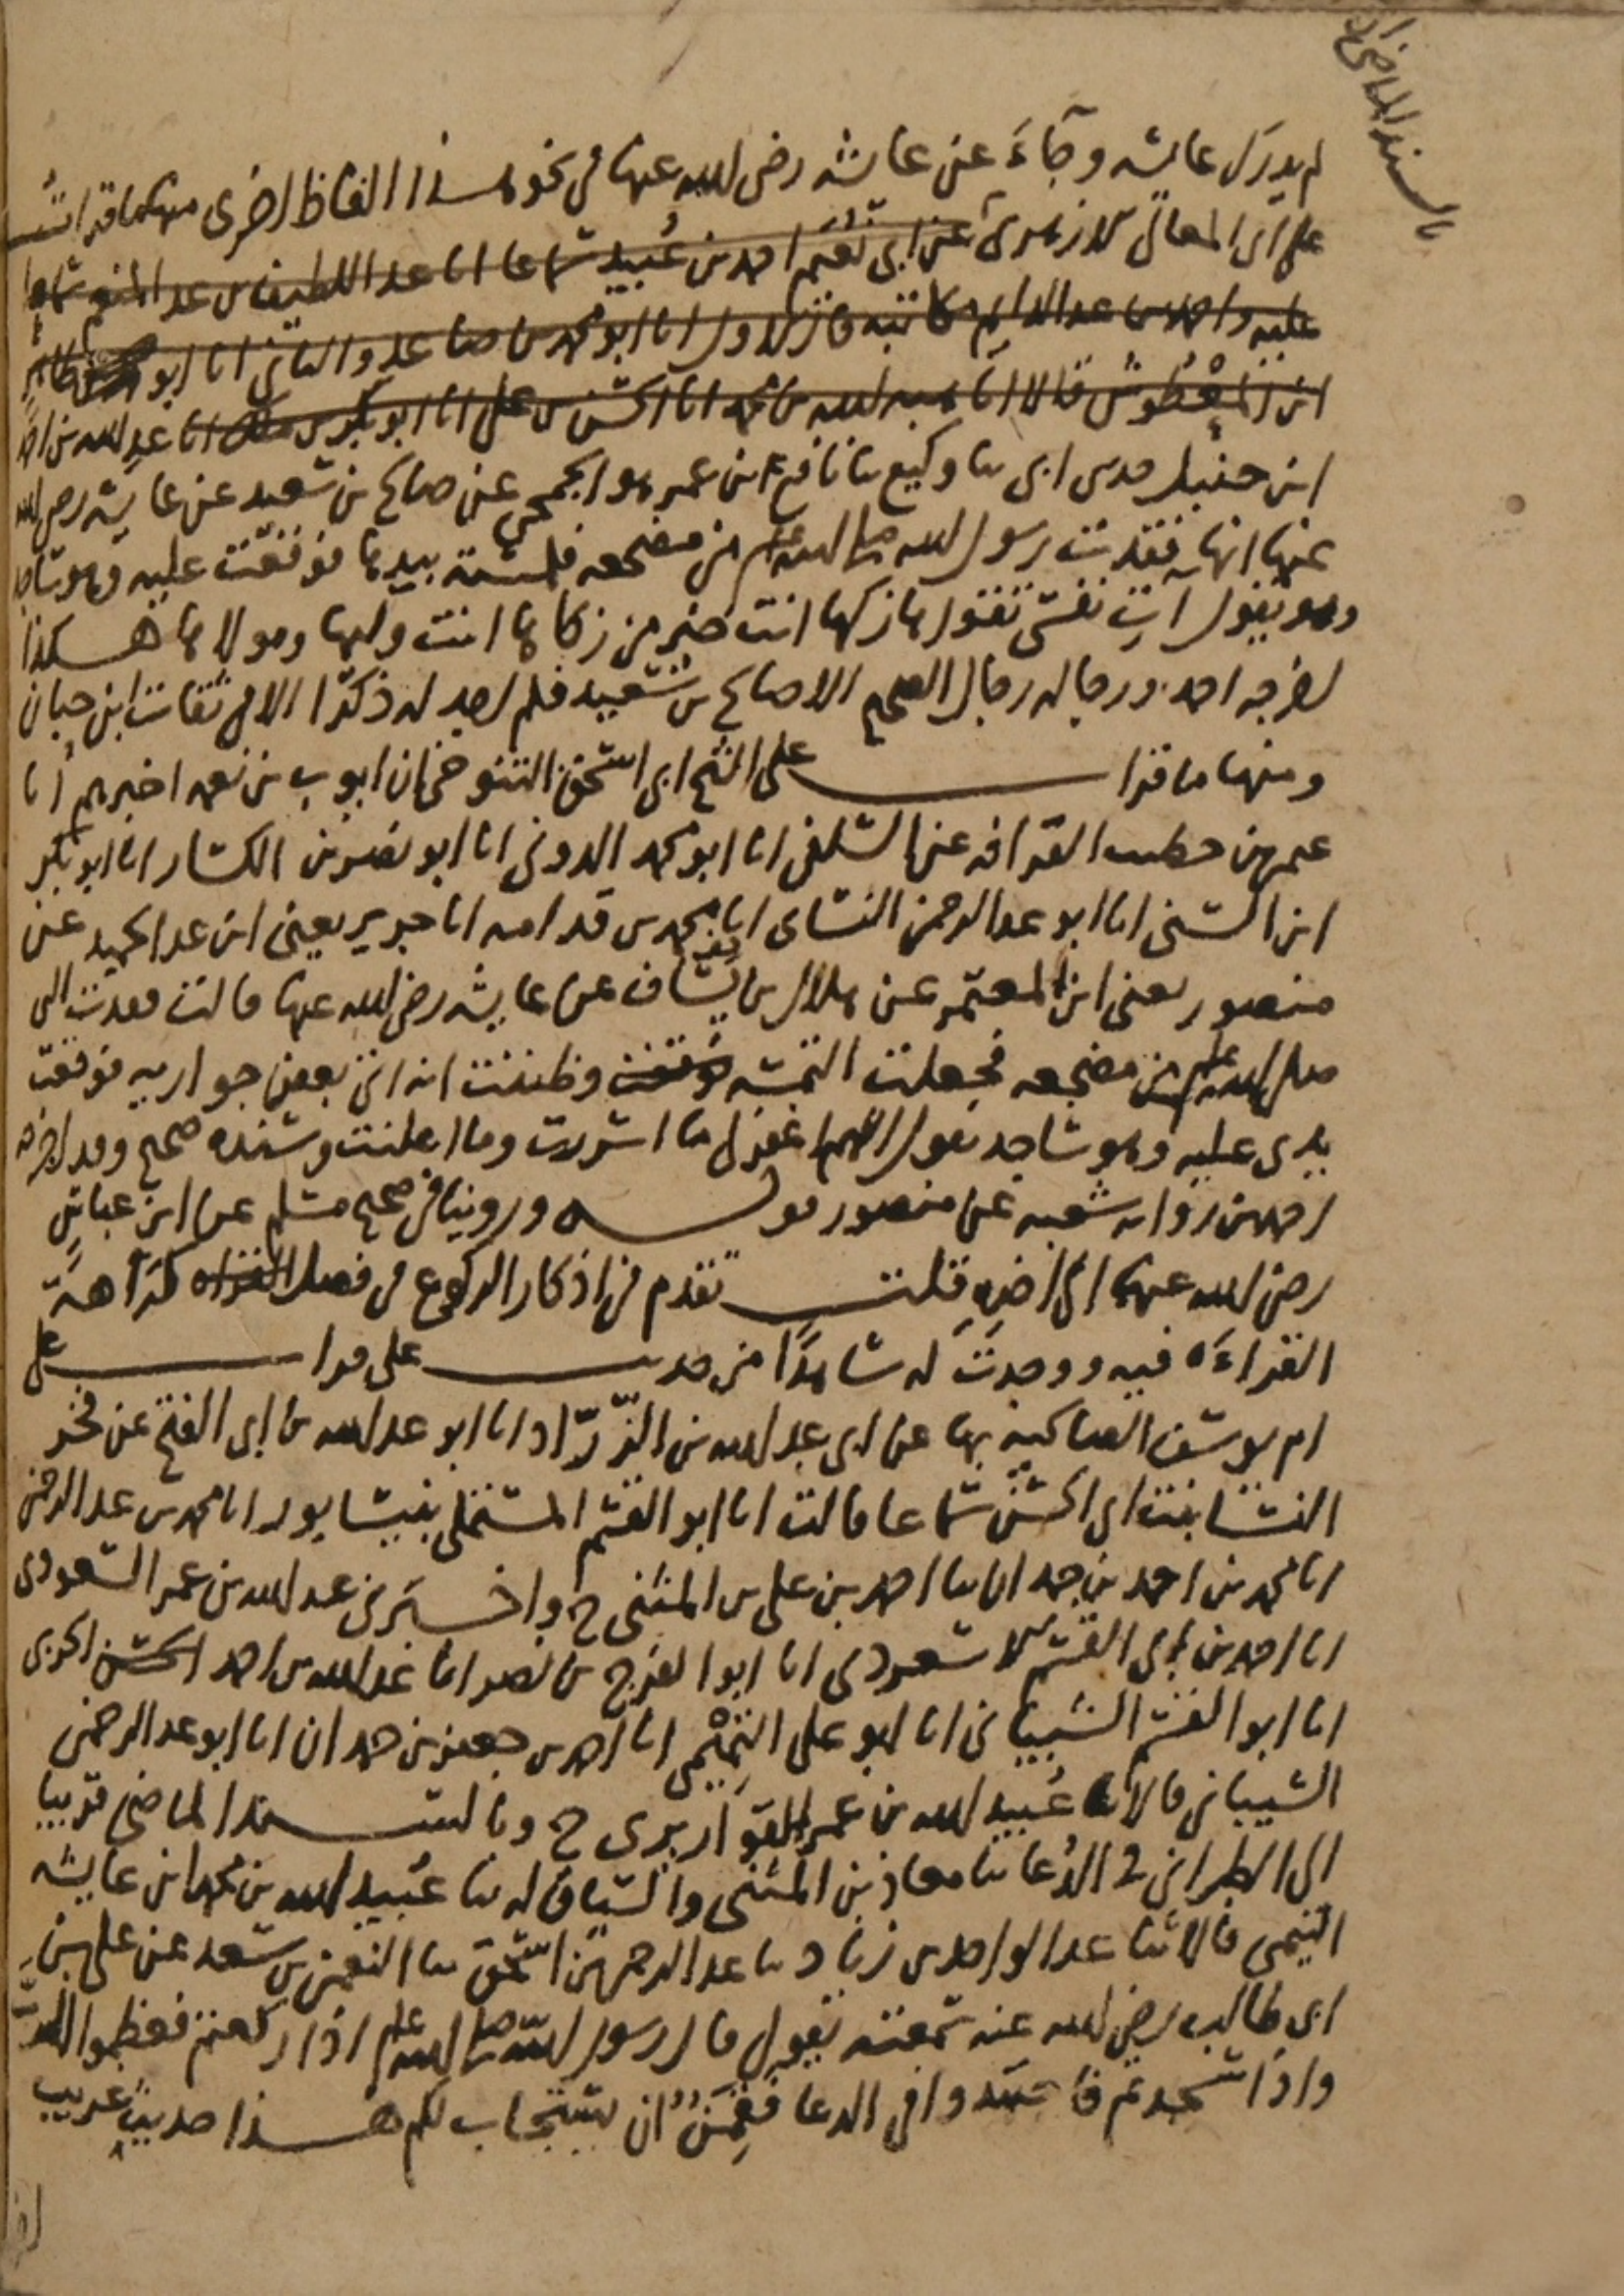 بالسند الماضي الى
لم يدرك عايشه وجاء عن عايشه رضي الله عنها في نحو هذا الفاظ اخرى منها ما قرات
على ابي المعالي الازهري عن ابي نعيم احمد بن عبيد سماعا انا عبد اللطيف بن عبد المنعم سماعا
عليه واحمد بن عبد الدايم مكاتبه قال الاول انا ابو محمد بن صاعد والثاني انا ابو طاهر
ابن المعطوش قالا انا هبه الله بن محمد انا الحسن بن علي انا ابو بكر بن مالك انا عبد الله بن احمد
ابن حنبل حدثني ابي ثنا وكيع ثنا نافع ابن عمر هو الجمحي عن صالح بن سعيد عن عايشه رضي الله
عنها انها فقدت رسول الله صلى الله عليه وسلم من مضجعه فلمسته بيدها فوقعت عليه وهو ساجد
وهو يقول آت نفسي تقواها زكها انت خير من زكاها انت وليها ومولاها هكذا
اخرجه احمد ورجاله رجال الصحيح الا صالح بن سعيد فلم اجد له ذكرا الا في ثقات ابن حبان
ومنها ما قرات على الشيخ ابي اسحق التنوخي ان ايوب بن نعمه اخبرهم انا
عمر بن خطيب القرافه عن السلفي انا ابو محمد الدوني انا ابو نصر بن الكسار انا ابو بكر
ابن السني انا ابو عبد الرحمن النسائي انا محمد بن قدامه انا جرير يعني ابن عبد الحميد عن
منصور يعني ابن المعتمر عن هلال بن يساف عن عايشه رضي الله عنها قالت فقدت النبي
صلى الله عليه وسلم من مضجعه فجعلت التمسه فوقعت وظننت انه اتى بعض جواريه فوقعت
يدي عليه وهو ساجد يقول اللهم اغفر لي ما اسررت وما اعلنت وسنده صحيح وقد اخرجه
احمد من رواية شعبه عن منصور قوله وروينا في صحيح مسلم عن ابن عباس
رضي الله عنهما الى اخره قلت تقدم في اذكار الركوع في فصل القراه كراهة
القراءه فيه ووجدت له شاهدا من حديث علي قرات على
ام يوسف الصالحيه بها عن ابي عبد الله بن الزراد انا ابو عبد الله بن ابي الفتح عن فخر
النسا بنت ابي الحسن سماعا قالت انا ابو القسم المستملي بنيسابور انا محمد بن عبد الرحمن
انا محمد بن احمد بن حمدان ثنا احمد بن علي بن المثنى ح واخبرني عبد الله بن عمر السعودي
انا احمد بن ابي القسم الاسعردي انا ابو الفرج بن نصر انا عبد الله بن احمد الحربي
انا ابو القسم الشيباني انا ابو علي التميمي انا احمد بن جعفر بن حمدان انا ابو عبد الرحمن
الشيباني قالا ثنا عبيد الله بن عمر القواريري ح وبالسند الماضي قريبا
الى الطبراني في الدعا ثنا معاذ بن المثنى والسياق له ثنا عبيد الله بن محمد ابن عايشه
التيمي قالا ثنا عبد الواحد بن زياد ثنا عبد الرحمن بن اسحق ثنا النعمن بن سعد عن علي بن
ابي طالب رضي الله عنه سمعته يقول قال رسول الله صلى الله عليه وسلم اذا ركعتم فعظموا الله
واذا سجدتم فاجتهدوا في الدعا فقمن ان يستجاب لكم هذا حديث غريب